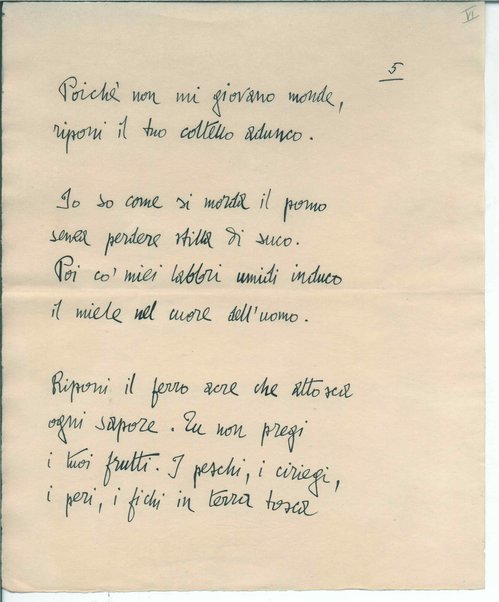 VI
5
Poichè non mi giovano monde,
riponi il tuo coltello adunco.
Io so come si morda il pomo
senza perdere stilla di suco.
Poi co' miei labbri umidi induco
il miele nel cuore dell'uomo.
Riponi il ferro acre che attosca
ogni sapore. Tu non pregi
i tuoi frutti. I peschi, i ciriegi,
i peri, i fichi in terra tosca